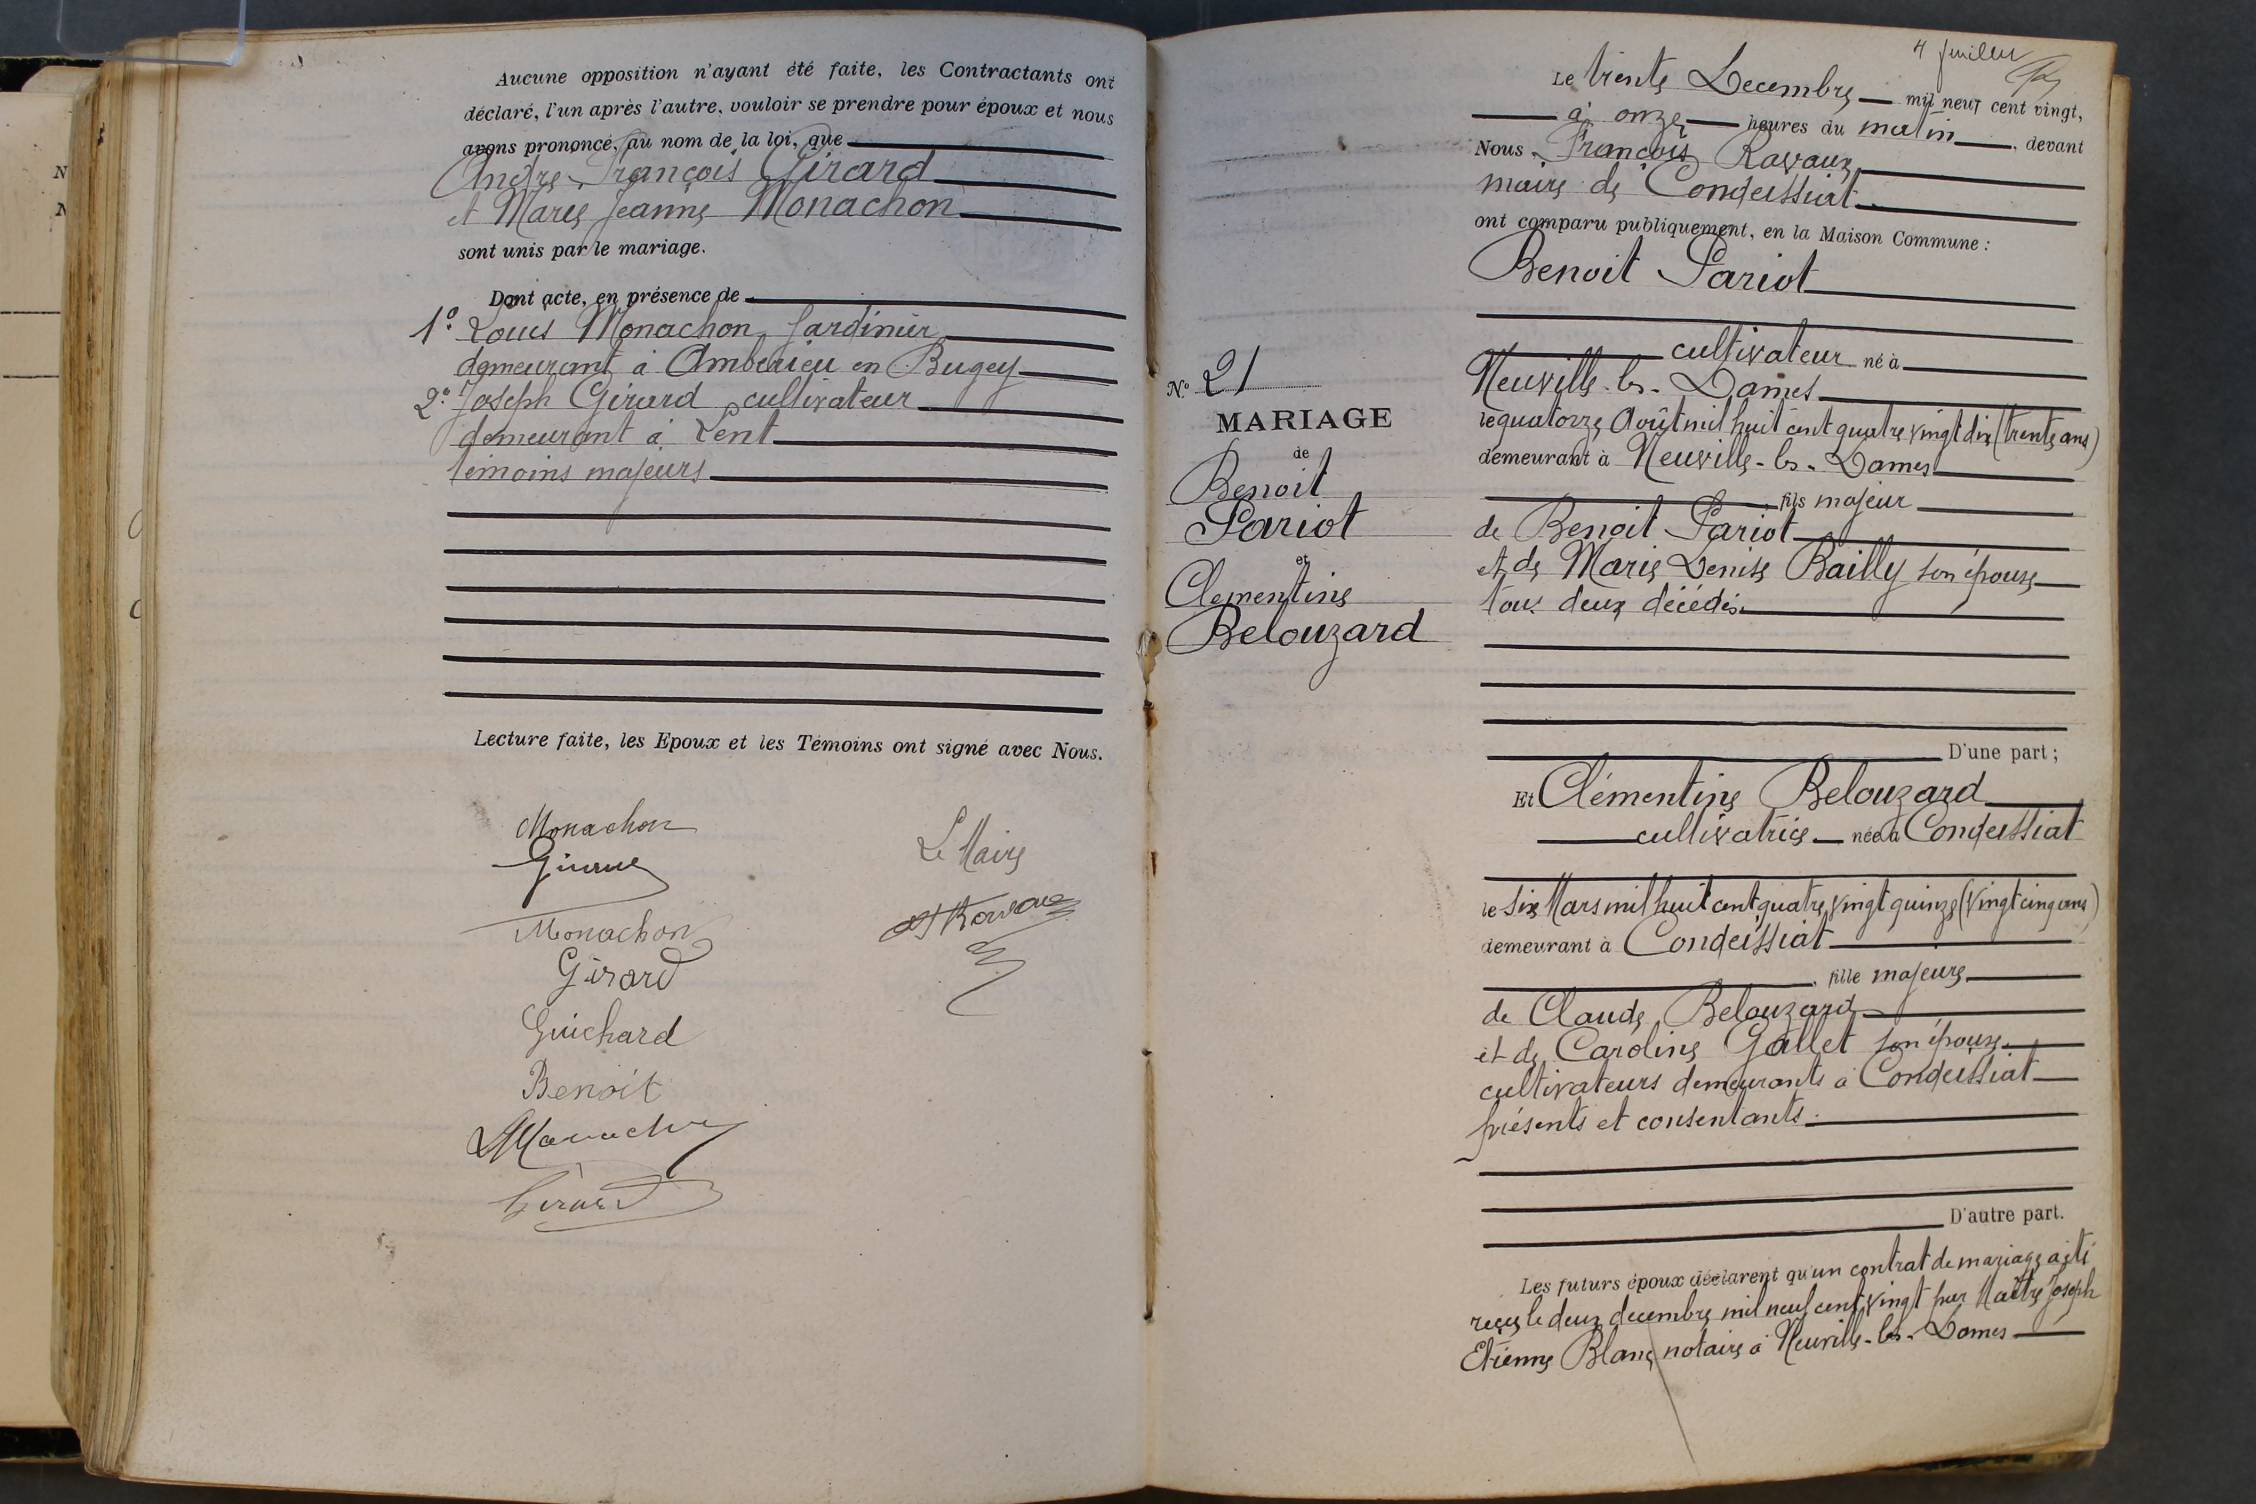 Aucune opposition n'ayant été faite, les Contractants ont
déclaré, l'un après l'autre, vouloir se prendre pour époux et nous
avons prononcé, au nom de la loi, que
André François Girard
et Marie Jeanne Monachon
sont unis par le mariage.
Dont acte, en présence de
1° Louis Monachon, Jardinier
demeurant à Ambérieu en Bugey
2° Joseph Girard cultivateur
demeurant à Lent
témoins majeurs
Lecture faite, les Epoux et les Témoins ont signé avec Nous.
Monachon
Girard
Monachon
Girard
Guichard
Benoit
Monachon
Girard
Le Maire
N° 21
MARIAGE
de
Benoit
Pariot
et
Clementine
Belouzard
4 feuillet
Le trente Decembre mil neuf cent vingt,
à onze heures du matin, devant
Nous François Ravaux
maire de Condeissiat
ont comparu publiquement, en la Maison Commune :
Benoit Pariot
cultivateur né à
Neuville-les-Dames
le quatorze Août mil huit cent quatre vingt dix (trente ans)
demeurant à Neuville-les-Dames
fils majeur
de Benoit Pariot
et de Marie Denise Bailly son épouse
tous deux décédés.
D'une part ;
Et Clémentine Belouzard
cultivatrice née à Condeissiat
le six Mars mil huit cent quatre vingt quinze (vingt cinq ans)
demeurant à Condeissiat
, fille majeure
de Claude Belouzard
et de Caroline Gallet son épouse
cultivateurs demeurants à Condeissiat
présents et consentants.
D'autre part.
Les futurs époux déclarent qu'un contrat de mariage a été
reçu le deux decembre mil neuf cent vingt par Maître Joseph
Etienne Blanc notaire à Neuville-les-Dames